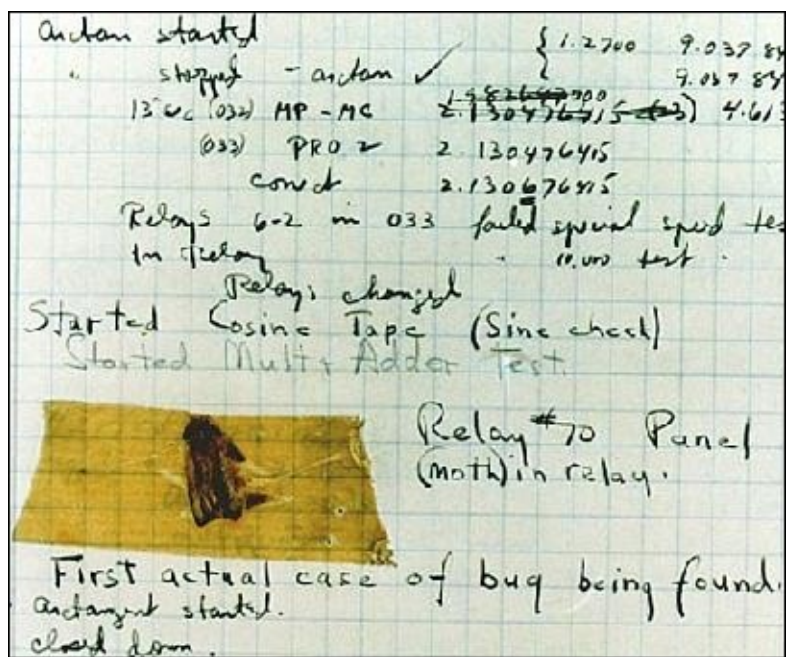 arctan started { 1.2700 9.037 84
" stopped - arctan ✓ 9.037 84
13"uc (032) MP - MC 2.130476415 (-3) 4.615
(033) PRO 2 2.130476415
conv̶ct 2.130676415
Relays 6-2 in 033 failed special speed tes
In Relay " 10.000 test .
Relays changed
Started Cosine Tape (Sine check)
Started Mult + Adder Test.
Relay #70 Panel
(moth) in relay.
First actual case of bug being found.
arctangent started.
closed down.